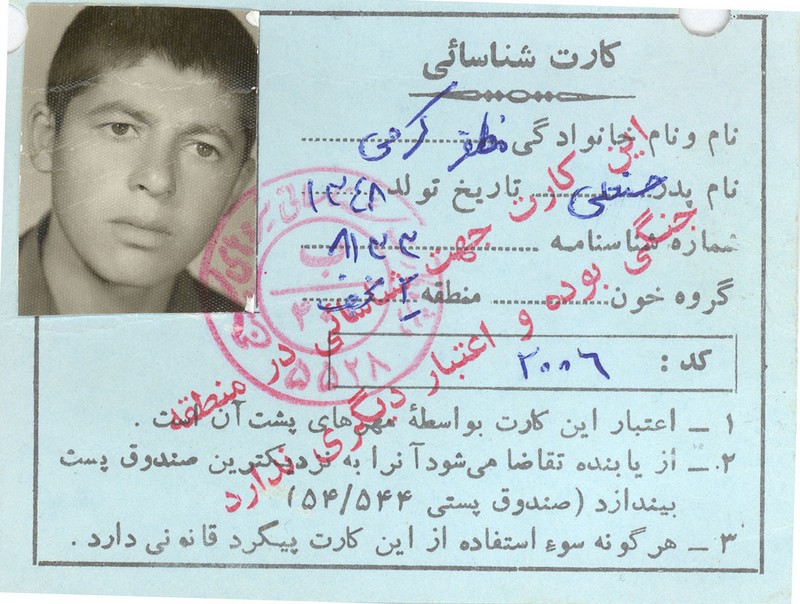 کارت شناسائی
نام ونام خانوادگی مظفر کرمی
نام پدر حسنعلی تاریخ تولد ۱۳۴۸
شماره شناسنامه ۸۱۳۳
گروه خون منطقه
کد : ۲۰۰۶
۱ ـ اعتبار این کارت بواسطهٔ مهرهای پشت آن است .
۲ ـ از یابنده تقاضا می‌شود آنرا به نزدیکترین صندوق پست
بیندازد (صندوق پستی ۵۴/۵۴۴)
۳ ـ هرگونه سوء استفاده از این کارت پیگرد قانونی دارد .
این کارت جهت شناسائی در منطقه
جنگی بوده و اعتبار دیگری ندارد
ب
۵۵۲۸